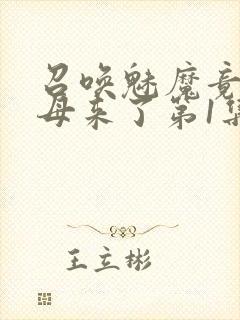 召唤魅魔竟
母来了第1集
王立彬